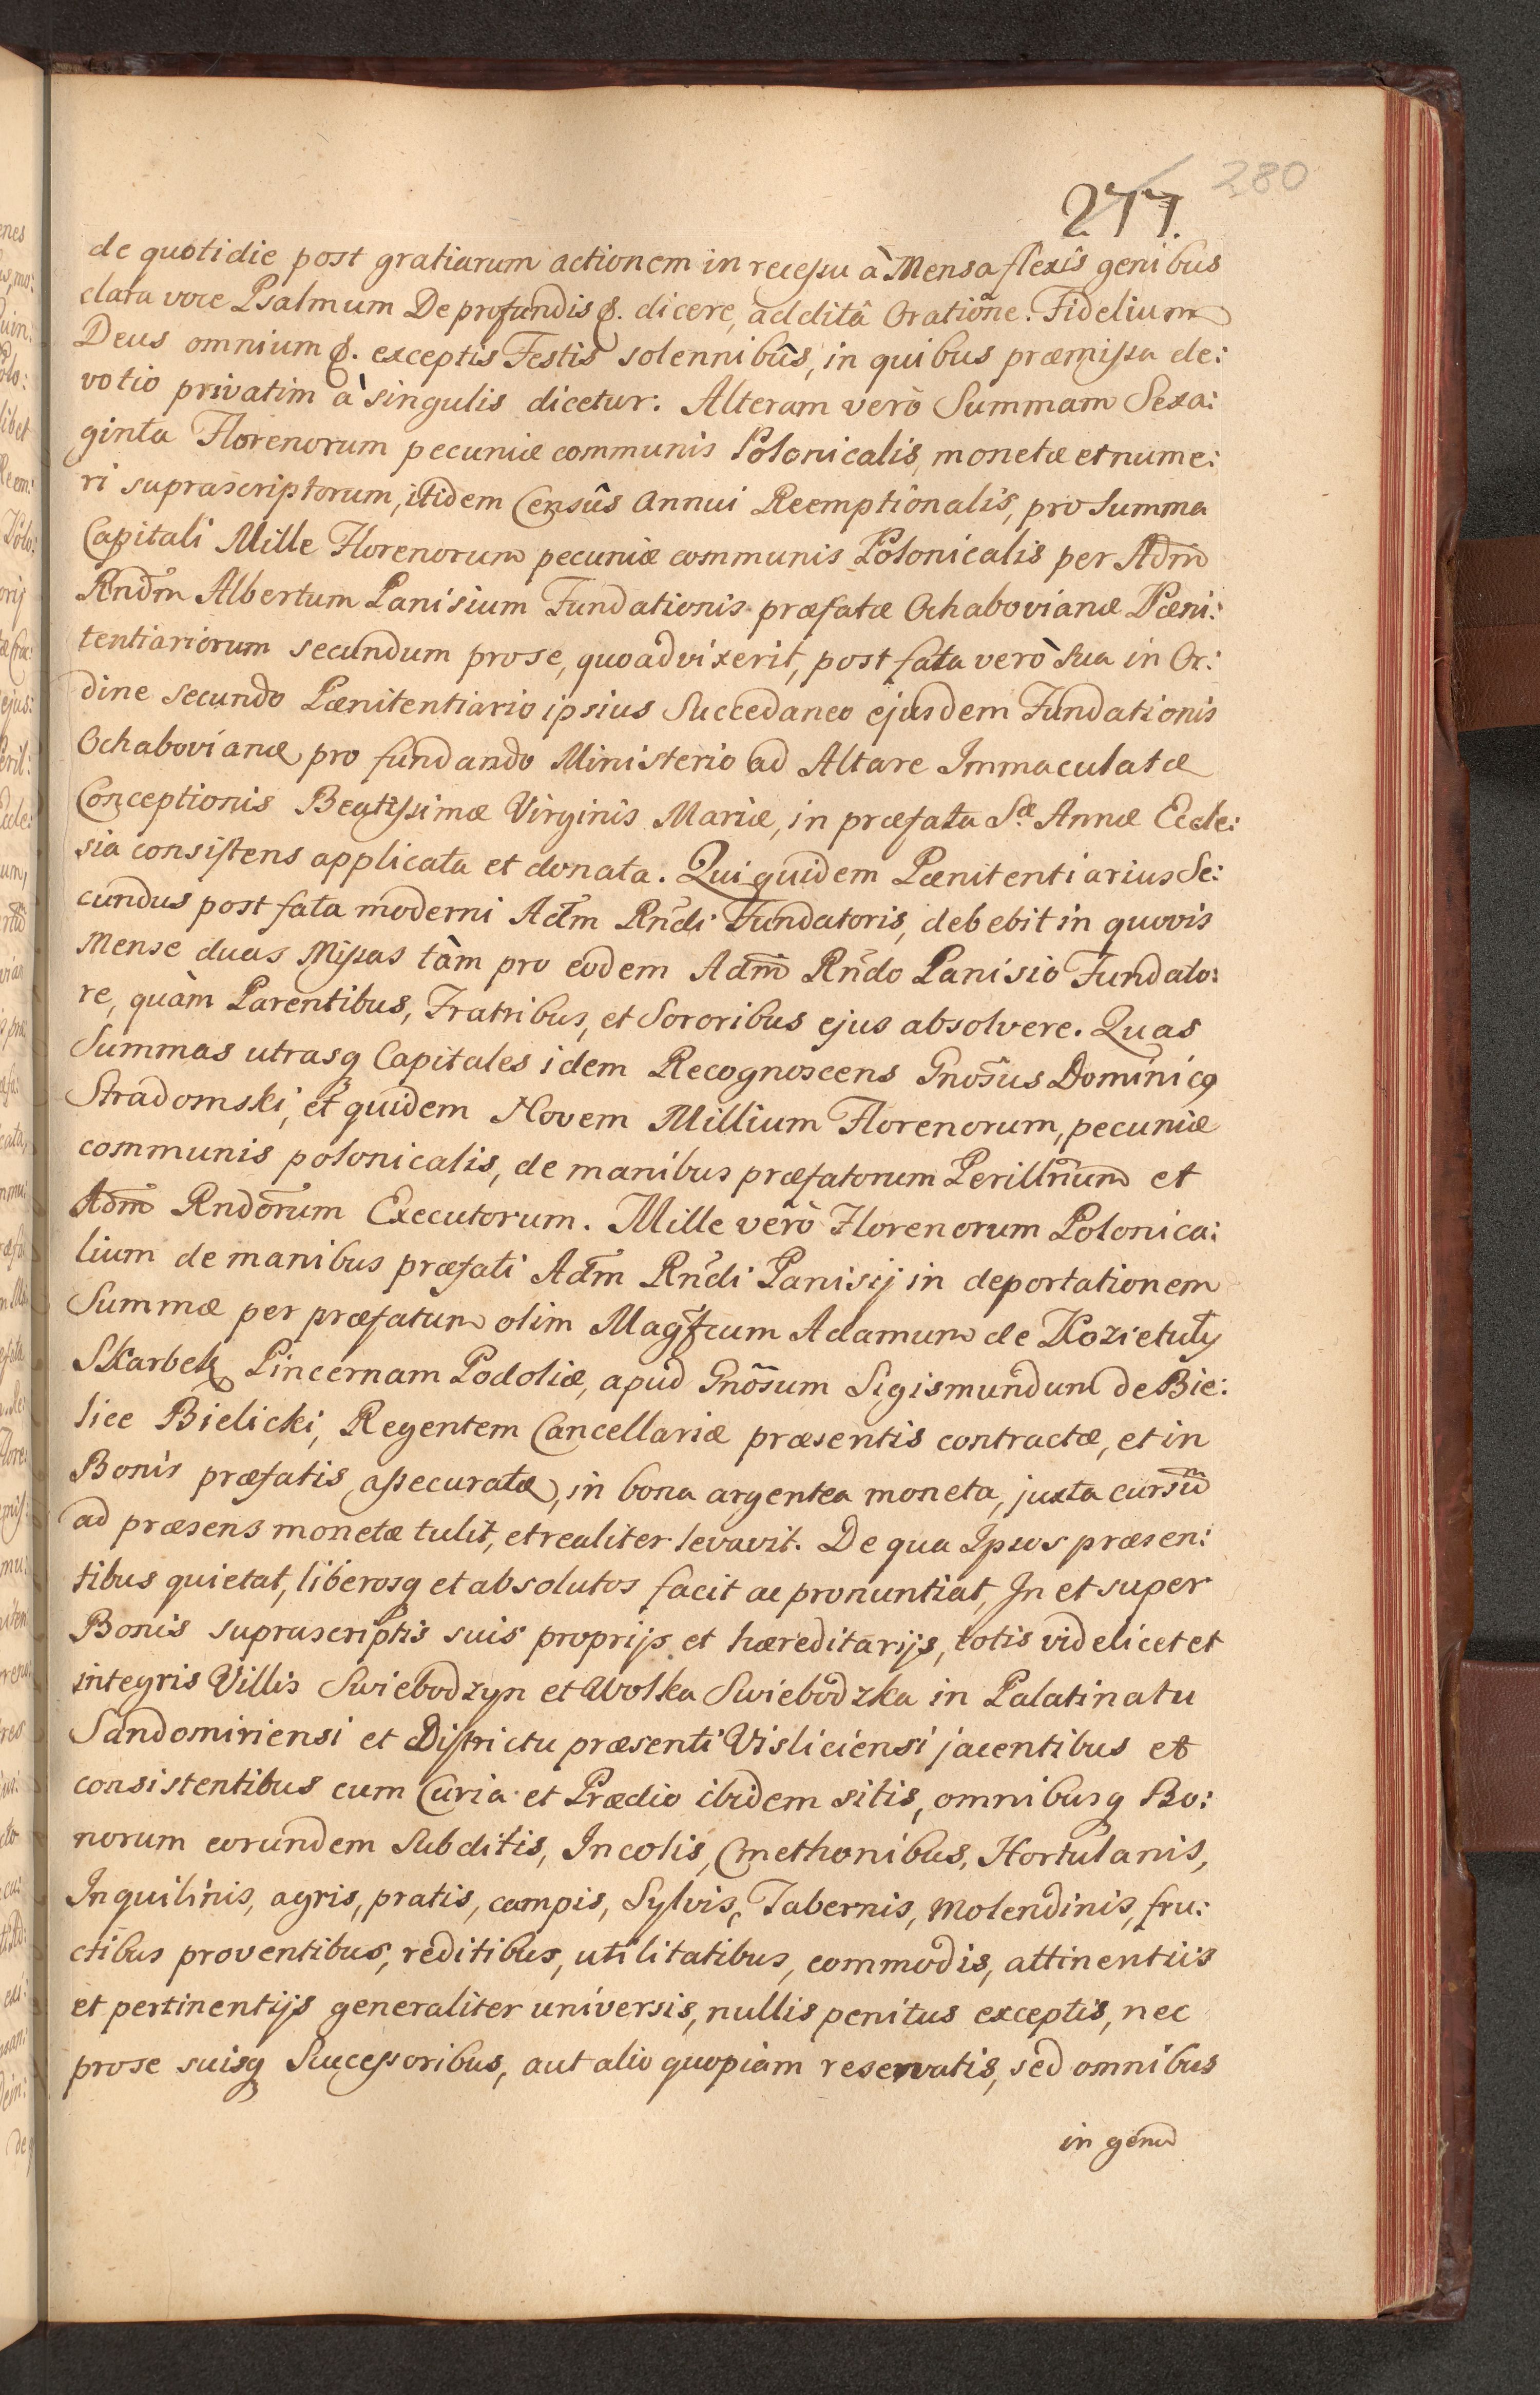 280
277.
de quotidie post gratiarum actionem in recessu à Mensa flexis genibus
clara voce Psalmum De profundis &. dicere, additâ Oratione. Fidelium
Deus omnium &. exceptis Festis solennibus, in quibus præmissa de:
votio privatim à singulis dicetur. Alteram verò Summam Sexa:
ginta Florenorum pecuniæ communis Polonicalis, monetæ et nume:
ri suprascriptorum, itidem Censûs Annui Reemptionalis, pro Summa
Capitali Mille Florenorum pecuniæ communis Polonicalis per Adm̄
Rndm̄ Albertum Panisium Fundationis præfatæ Ochabovianæ Pæni:
tentiariorum secundum pro se, quoad vixerit, post fata verò sua in Or:
dine secundo Pænitentiario ipsius Succedaneo ejusdem Fundationis
Ochabovianæ pro fundando Ministerio ad Altare Immaculatæ
Conceptionis Beatissimæ Virginis Mariæ, in præfata Sæ Annæ Eccle:
sia consistens applicata et donata. Qui quidem Pænitentiarius Se:
cundus post fata moderni Adm̄ Rndi Fundatoris, debebit in quovis
Mense duas Missas tàm pro eodem Adm̄ Rndo Panisio Fundato:
re, quàm Parentibus, Fratribus, et Sororibus ejus absolvere. Quas
Summas utrasq Capitales idem Recognoscens Gnosus Dominicq
Stradomski, et quidem Novem Millium Florenorum, pecuniæ
communis polonicalis, de manibus præfatorum Perillrium et
Adm̄ Rndorum Executorum. Mille verò Florenorum Polonica:
lium de manibus præfati Adm̄ Rndi Panisij in deportationem
Summæ per præfatum olim Magfcum Adamum de Kozietuly
Skarbek Pincernam Podoliæ, apud Gnosum Sigismundum de Bie:
lice Bielicki, Regentem Cancellariæ præsentis contractæ, et in
Bonis præfatis assecuratæ, in bona argentea moneta, juxta cursūm
ad præsens monetæ tulit, et realiter levavit. De qua Ipsos præsen:
tibus quietat, liberosq et absolutos facit ac pronuntiat, In et super
Bonis suprascriptis suis proprijs et hæreditarijs, totis videlicet et
integris Villis Swiebodzyn et Wolka Swiebodzka in Palatinatu
Sandomiriensi et Districtu præsenti Visliciensi jacentibus et
consistentibus cum Curia et Prædio ibidem sitis, omnibusq Bo:
norum eorundem Subditis, Incolis, Cmethonibus, Hortulanis,
Inquilinis, agris, pratis, campis, Sylvis, Tabernis, Molendinis, fru:
ctibus proventibus, reditibus, utilitatibus, commodis, attinentiis
et pertinentijs generaliter universis, nullis penitus exceptis, nec
pro se suisq Successoribus, aut alio quopiam reservatis, sed omnibus
in genere